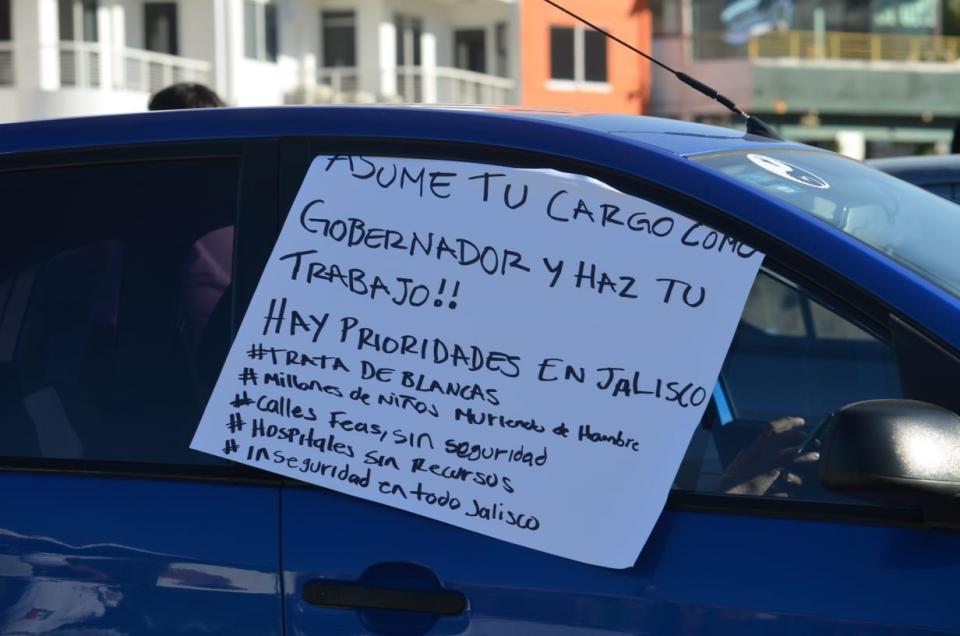 ASUME TU CARGO COMO
GOBERNADOR Y HAZ TU
TRABAJO!!
HAY PRIORIDADES EN JALISCO
#TRATA DE BLANCAS
# Millones de NIÑOS Muriendo de Hambre
# Calles Feas, sin seguridad
# Hospitales sin Recursos
# Inseguridad en todo Jalisco